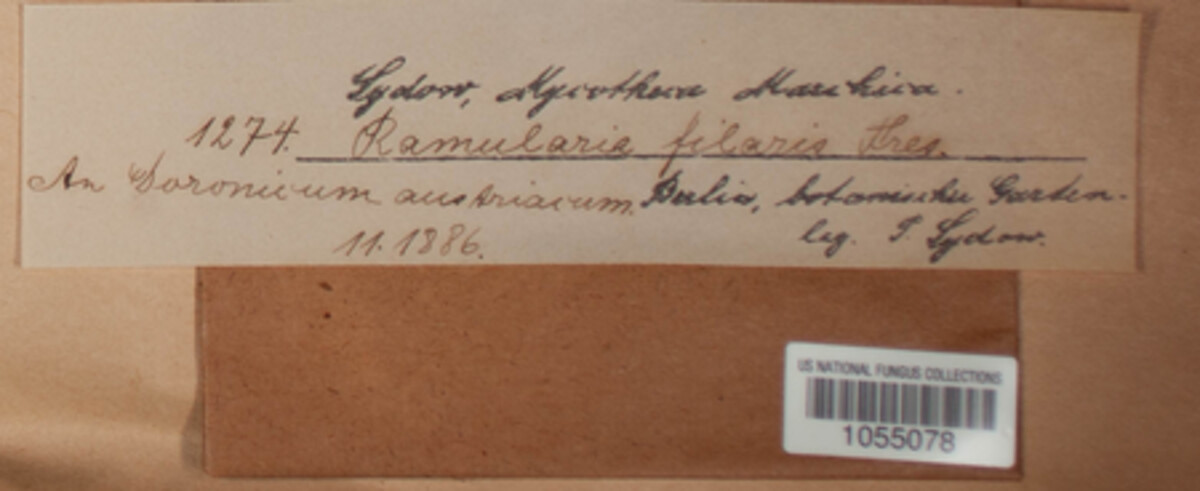 Sydow, Mycotheca Marchica.
1274. Ramularia filaris Fres.
An Doronicum austriacum. Berlin, botanischer Garten.
11. 1886. leg. P. Sydow.
US NATIONAL FUNGUS COLLECTIONS
1055078